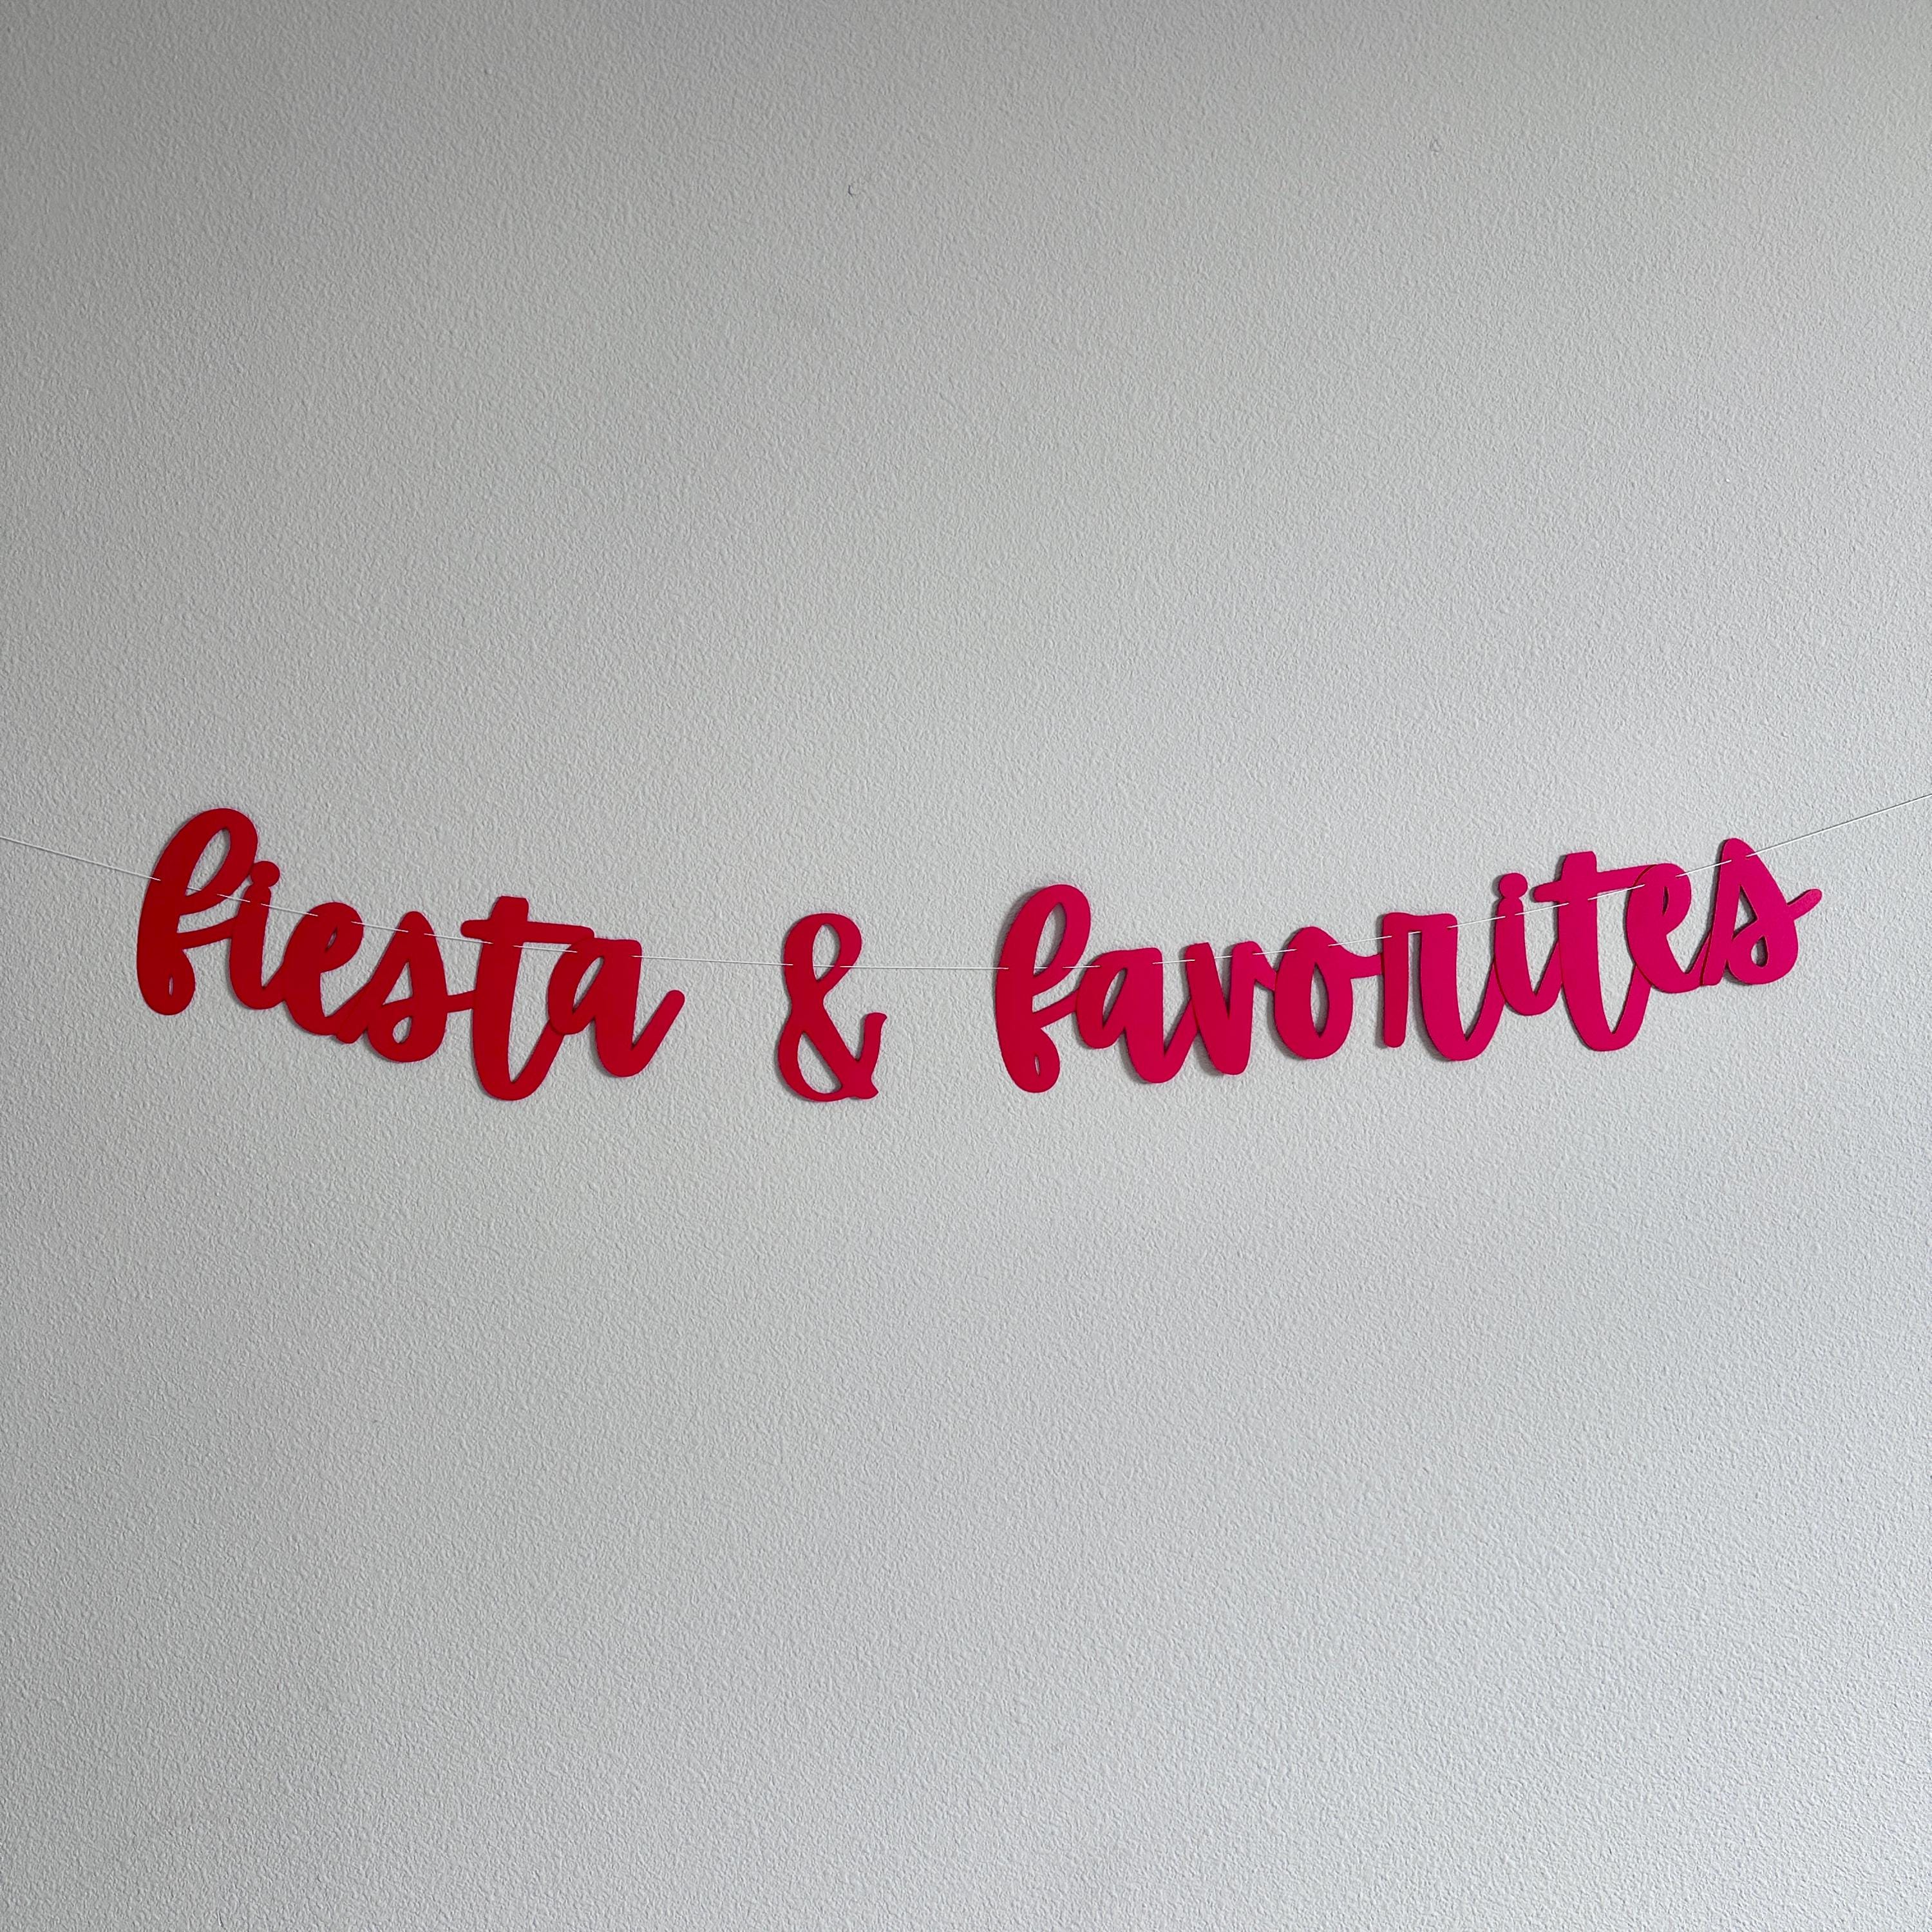 fiesta & favorites